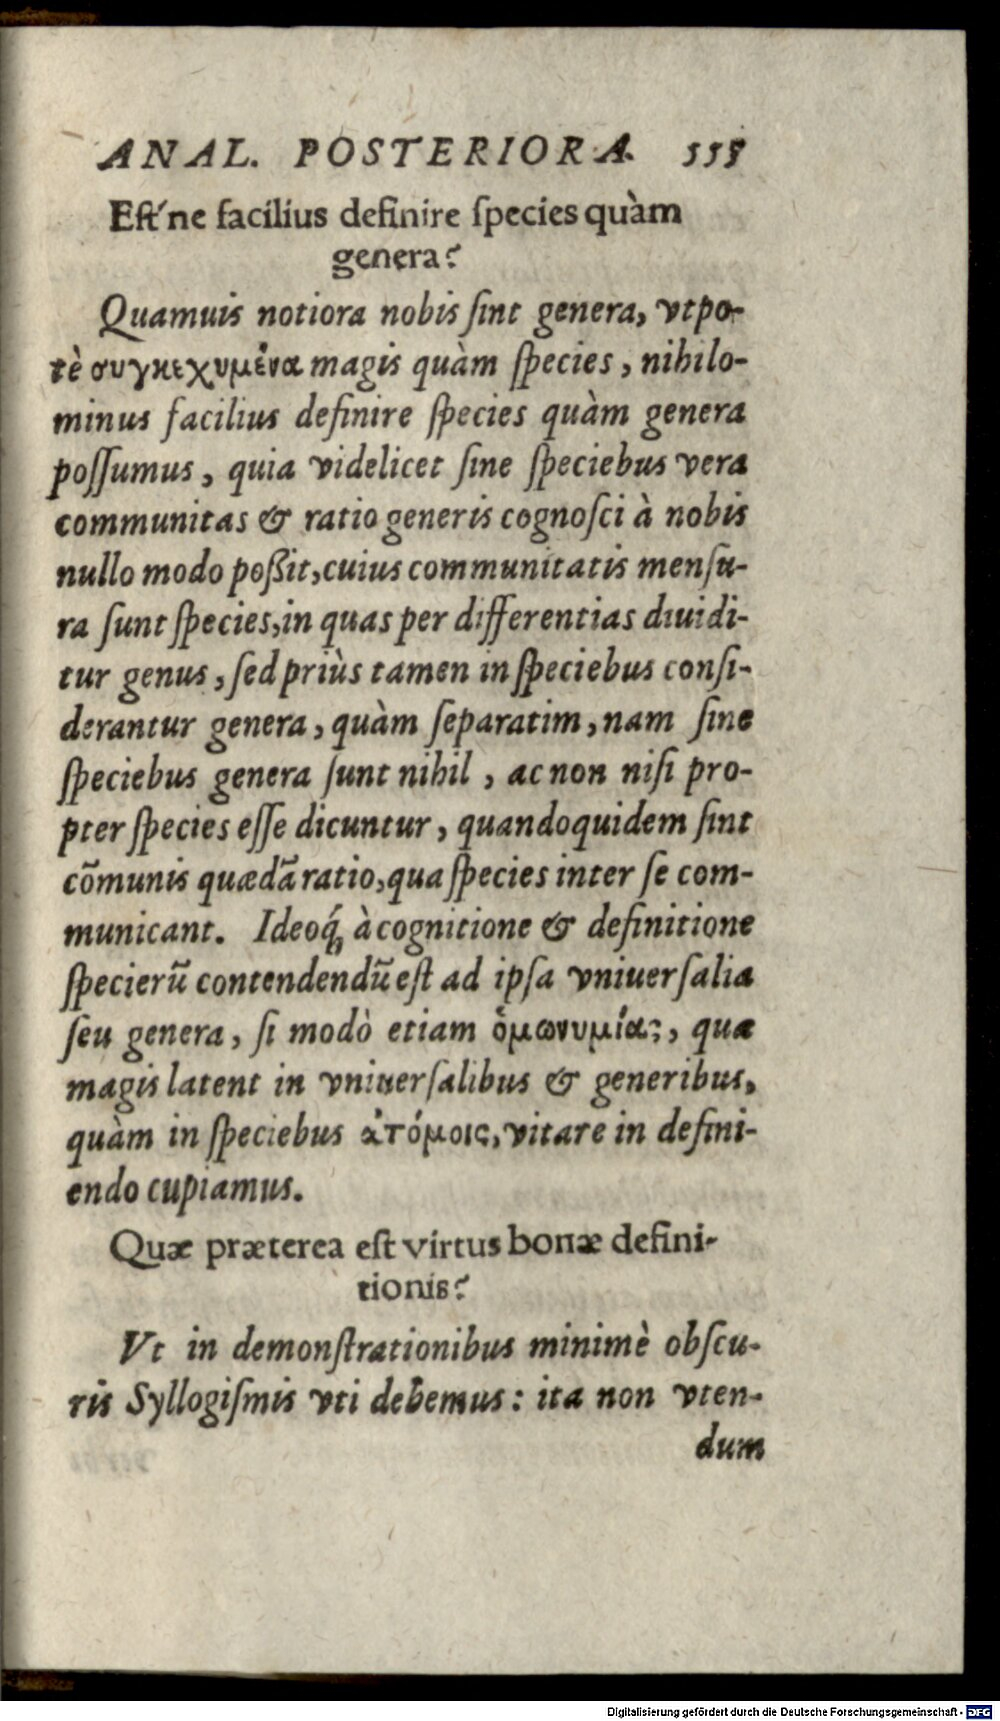 ANAL. POSTERIORA. 555
Eſt'ne facilius definire ſpecies quàm
genera?
Quamuis notiora nobis ſint genera, vtpo-
tè συγκεχυμένα magis quàm ſpecies, nihilo-
minus facilius definire ſpecies quàm genera
poſſumus, quia videlicet ſine ſpeciebus vera
communitas & ratio generis cognoſci à nobis
nullo modo poßit, cuius communitatis menſu-
ra ſunt ſpecies, in quas per differentias diuidi-
tur genus, ſed priùs tamen in ſpeciebus conſi-
derantur genera, quàm ſeparatim, nam ſine
ſpeciebus genera ſunt nihil, ac non niſi pro-
pter ſpecies eſſe dicuntur, quandoquidem ſint
cōmunis quædā ratio, qua ſpecies inter ſe com-
municant. Ideoq́; à cognitione & definitione
ſpecierū contendendū eſt ad ipſa vniuerſalia
ſeu genera, ſi modò etiam ὁμωνυμίας, quæ
magis latent in vniuerſalibus & generibus,
quàm in ſpeciebus ἀτόμοις, vitare in defini-
endo cupiamus.
Quæ præterea eſt virtus bonæ defini-
tionis?
Vt in demonſtrationibus minimè obſcu-
ris Syllogiſmis vti debemus: ita non vten-
dum
Digitalisierung gefördert durch die Deutsche Forschungsgemeinschaft - DFG